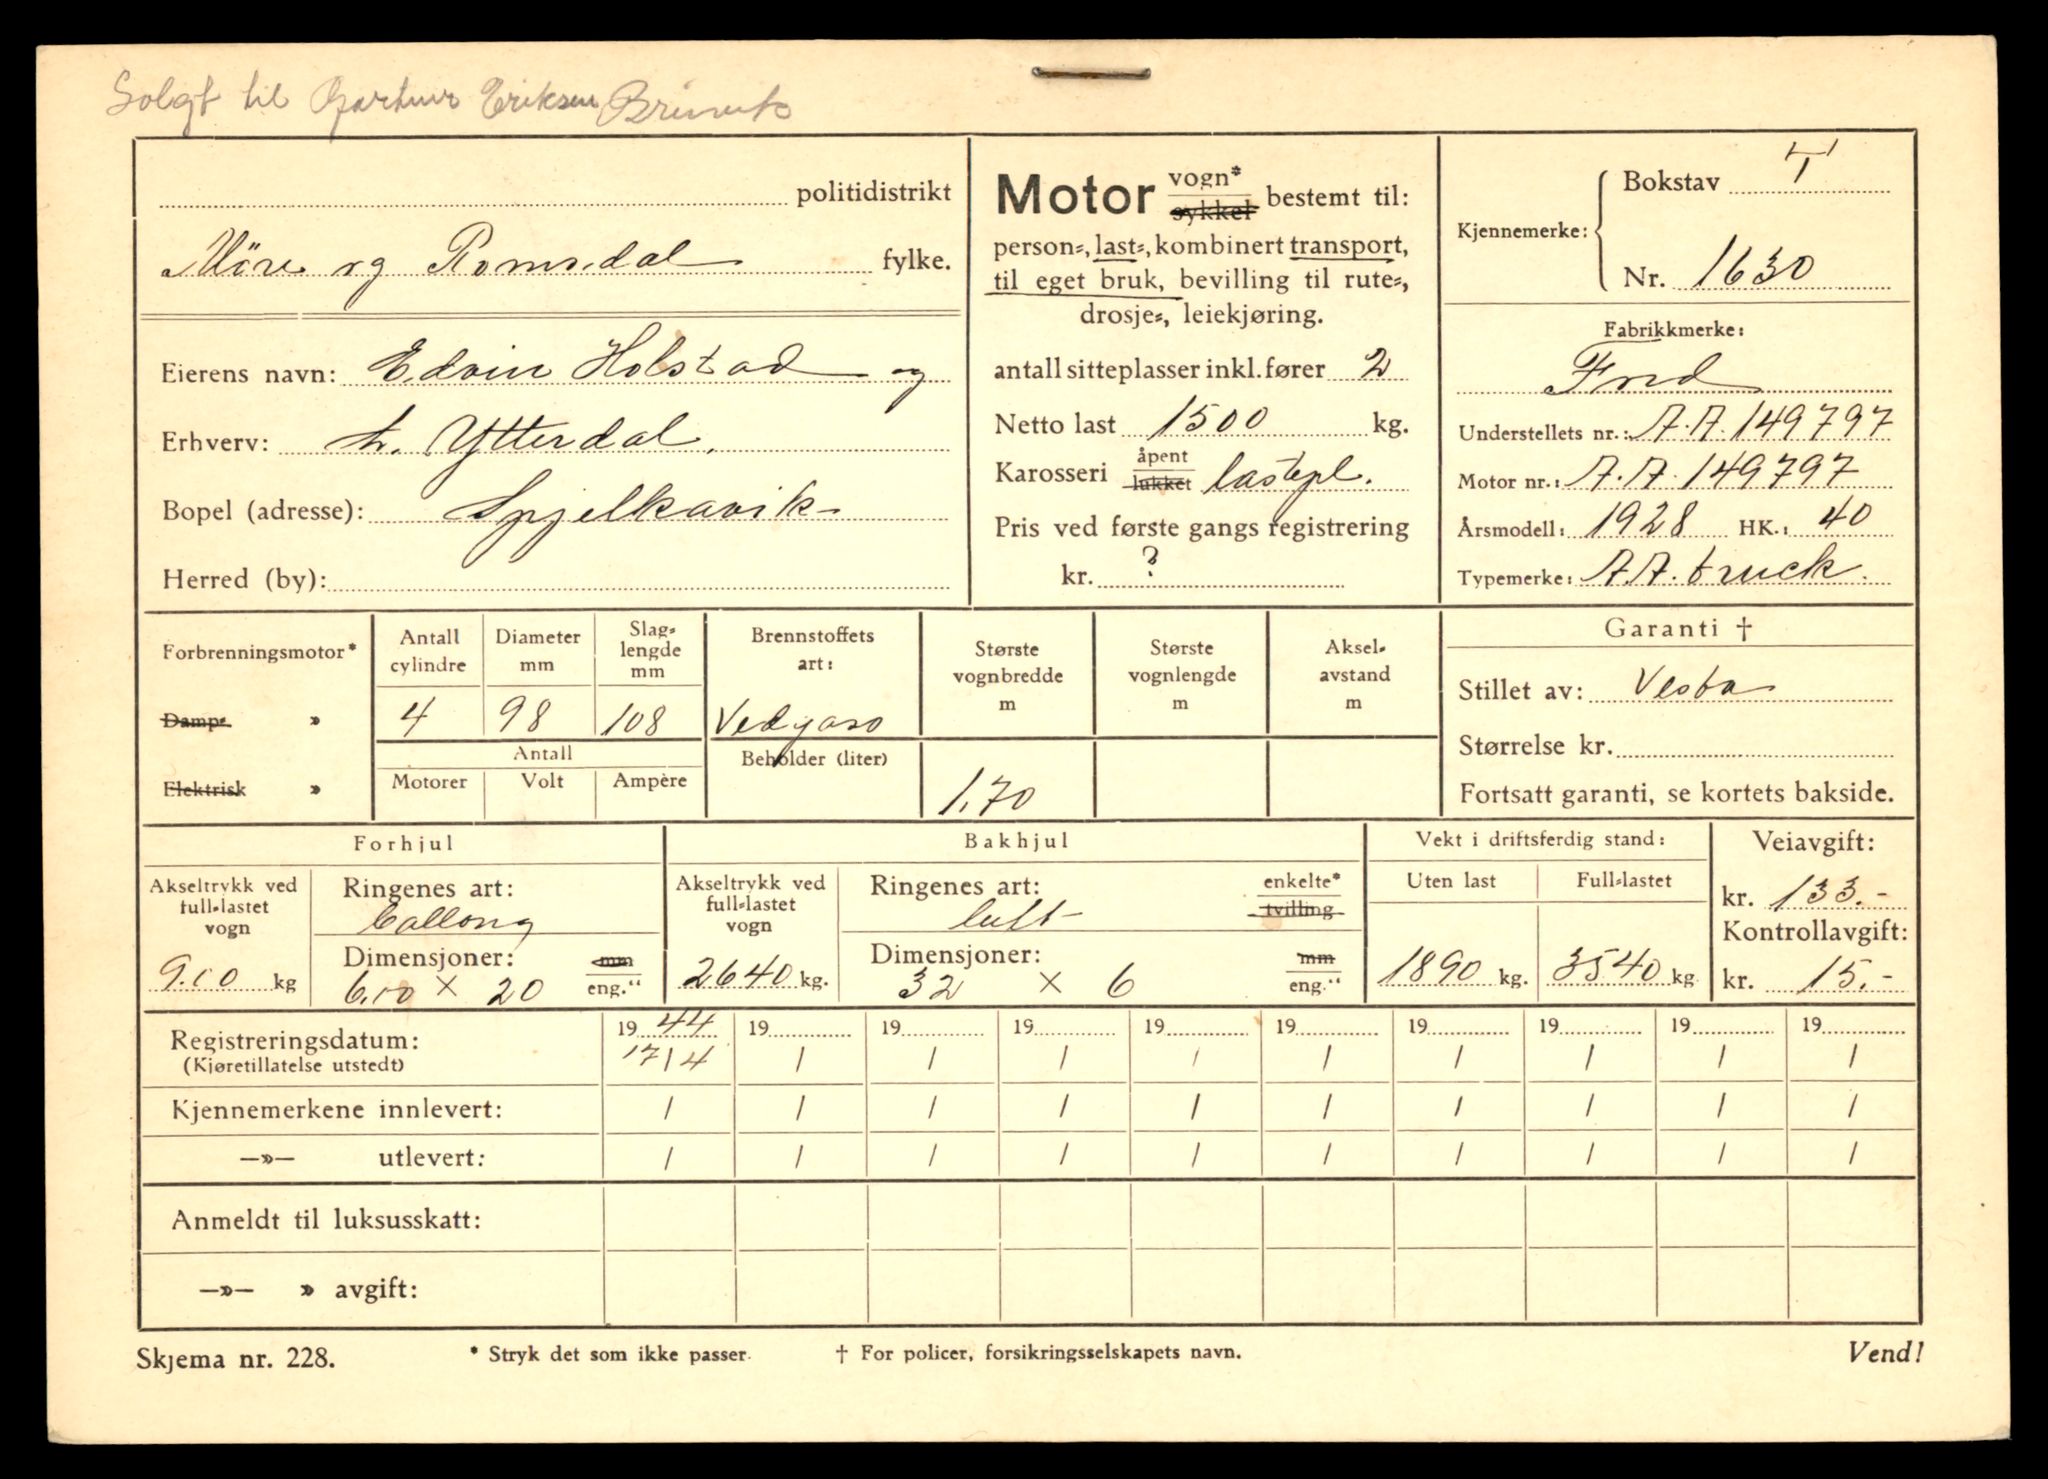 Solgt til Gartner Eriksen
politidistrikt
Möre og Romsdal fylke.
Eierens navn: Edvin Holstad og
Erhverv: h. Ytterdal.
Bopel (adresse): Spjelkavik
Herred (by):
Motor vogn* sykkel bestemt til:
person-, last-, kombinert transport,
til eget bruk, bevilling til rute-,
drosje-, leiekjøring.
antall sitteplasser inkl. fører 2
Netto last 1500 kg.
Karosseri åpent lukket lastepl.
Pris ved første gangs registrering
kr. ?
Kjennemerke: Bokstav T
Nr. 1630
Fabrikkmerke:
Ford
Understellets nr.: A.A. 149797
Motor nr.: A.A. 149797
Årsmodell: 1928 HK.: 40
Typemerke: A.A. truck.
Forbrenningsmotor*
Damp- »
Elektrisk »
Antall cylindre Diameter mm Slag-lengde mm
4 98 108
Antall
Motorer Volt Ampère
Brennstoffets art:
Vedgass
Beholder (liter)
Største vognbredde m
1,70
Største vognlengde m
Aksel-avstand m
Garanti †
Stillet av: Vesta
Størrelse kr.
Fortsatt garanti, se kortets bakside.
Forhjul
Akseltrykk ved full-lastet vogn
900 kg
Ringenes art:
Ballong
Dimensjoner: mm
6.00 × 20 eng."
Bakhjul
Akseltrykk ved full-lastet vogn
2640 kg.
Ringenes art: enkelte*
luft tvilling
Dimensjoner: mm
32 × 6 eng."
Vekt i driftsferdig stand:
Uten last Full-lastet
1890 kg. 3540 kg.
Veiavgift:
kr. 133.-
Kontrollavgift:
kr. 15.-
Registreringsdatum: 19 44 19 19 19 19 19 19 19 19 19
(Kjøretillatelse utstedt) 17/4 / / / / / / / / /
Kjennemerkene innlevert: / / / / / / / / / /
—»— utlevert: / / / / / / / / / /
Anmeldt til luksusskatt:
—»— » avgift:
Skjema nr. 228. * Stryk det som ikke passer. † For policer, forsikringsselskapets navn. Vend!